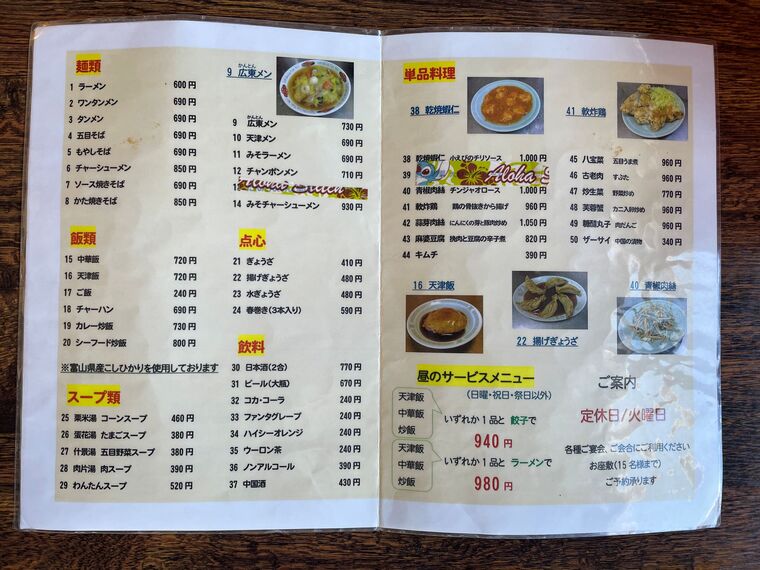 麺類
1 ラーメン 600円
2 ワンタンメン 690円
3 タンメン 690円
4 五目そば 690円
5 もやしそば 690円
6 チャーシューメン 850円
7 ソース焼きそば 690円
8 かた焼きそば 850円
かんとん
9 広東メン
かんとん
9 広東メン 730円
10 天津メン 690円
11 みそラーメン 690円
12 チャンポンメン 710円
13
Aloha Stitch
14 みそチャーシューメン 930円
飯類
15 中華飯 720円
16 天津飯 720円
17 ご飯 240円
18 チャーハン 690円
19 カレー炒飯 730円
20 シーフード炒飯 800円
※富山県産こしひかりを使用しております
スープ類
25 粟米湯 コーンスープ 460円
26 蛋花湯 たまごスープ 380円
27 什景湯 五目野菜スープ 380円
28 肉片湯 肉スープ 390円
29 わんたんスープ 520円
点心
21 ぎょうざ 410円
22 揚げぎょうざ 480円
23 水ぎょうざ 480円
24 春巻き(3本入り) 590円
飲料
30 日本酒(2合) 770円
31 ビール(大瓶) 670円
32 コカ・コーラ 240円
33 ファンタグレープ 240円
34 ハイシーオレンジ 240円
35 ウーロン茶 240円
36 ノンアルコール 390円
37 中国酒 430円
単品料理
38 乾焼蝦仁
41 軟炸鶏
38 乾焼蝦仁 小えびのチリソース 1.000円
39
Aloha S
40 青椒肉絲 チンジャオロース 1.000円
41 軟炸鶏 鶏の骨抜きから揚げ 960円
42 蒜芽肉絲 にんにくの芽と豚肉炒め 1.050円
43 麻婆豆腐 挽肉と豆腐の辛子煮 820円
44 キムチ 390円
45 八宝菜 五目うま煮 960円
46 古老肉 すぶた 960円
47 炒生菜 野菜炒め 770円
48 芙蓉蟹 カニ入卵炒め 960円
49 糖醋丸子 肉だんご 960円
50 ザーサイ 中国の漬物 340円
16 天津飯
22 揚げぎょうざ
40 青椒肉絲
昼のサービスメニュー
(日曜・祝日・祭日以外)
天津飯
中華飯 いずれか1品と 餃子で
炒飯 940円
天津飯
中華飯 いずれか1品と ラーメンで
炒飯 980円
ご案内
定休日/火曜日
各種ご宴会、ご会合にご利用ください
お座敷(15名様まで)
ご予約承ります